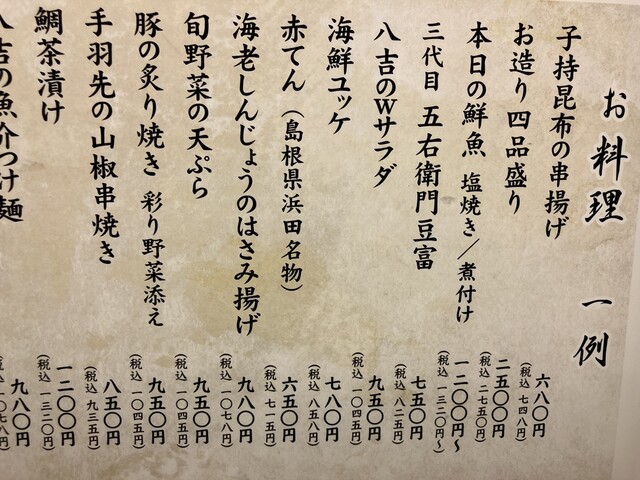 お料理 一例
子持昆布の串揚げ 六八〇円 (税込 七四八円)
お造り四品盛り 二五〇〇円 (税込 二七五〇円)
本日の鮮魚 塩焼き/煮付け 一二〇〇円〜 (税込 一三二〇円〜)
三代目 五右衛門豆富 七五〇円 (税込 八二五円)
八吉のWサラダ 九五〇円 (税込 一〇四五円)
海鮮ユッケ 七八〇円 (税込 八五八円)
赤てん (島根県浜田名物) 六五〇円 (税込 七一五円)
海老しんじょうのはさみ揚げ 九八〇円 (税込 一〇七八円)
旬野菜の天ぷら 九五〇円 (税込 一〇四五円)
豚の炙り焼き 彩り野菜添え 九五〇円 (税込 一〇四五円)
手羽先の山椒串焼き 八五〇円 (税込 九三五円)
鯛茶漬け 一二〇〇円 (税込 一三二〇円)
八吉の魚介つけ麺 九八〇円 (税込 一〇七八円)